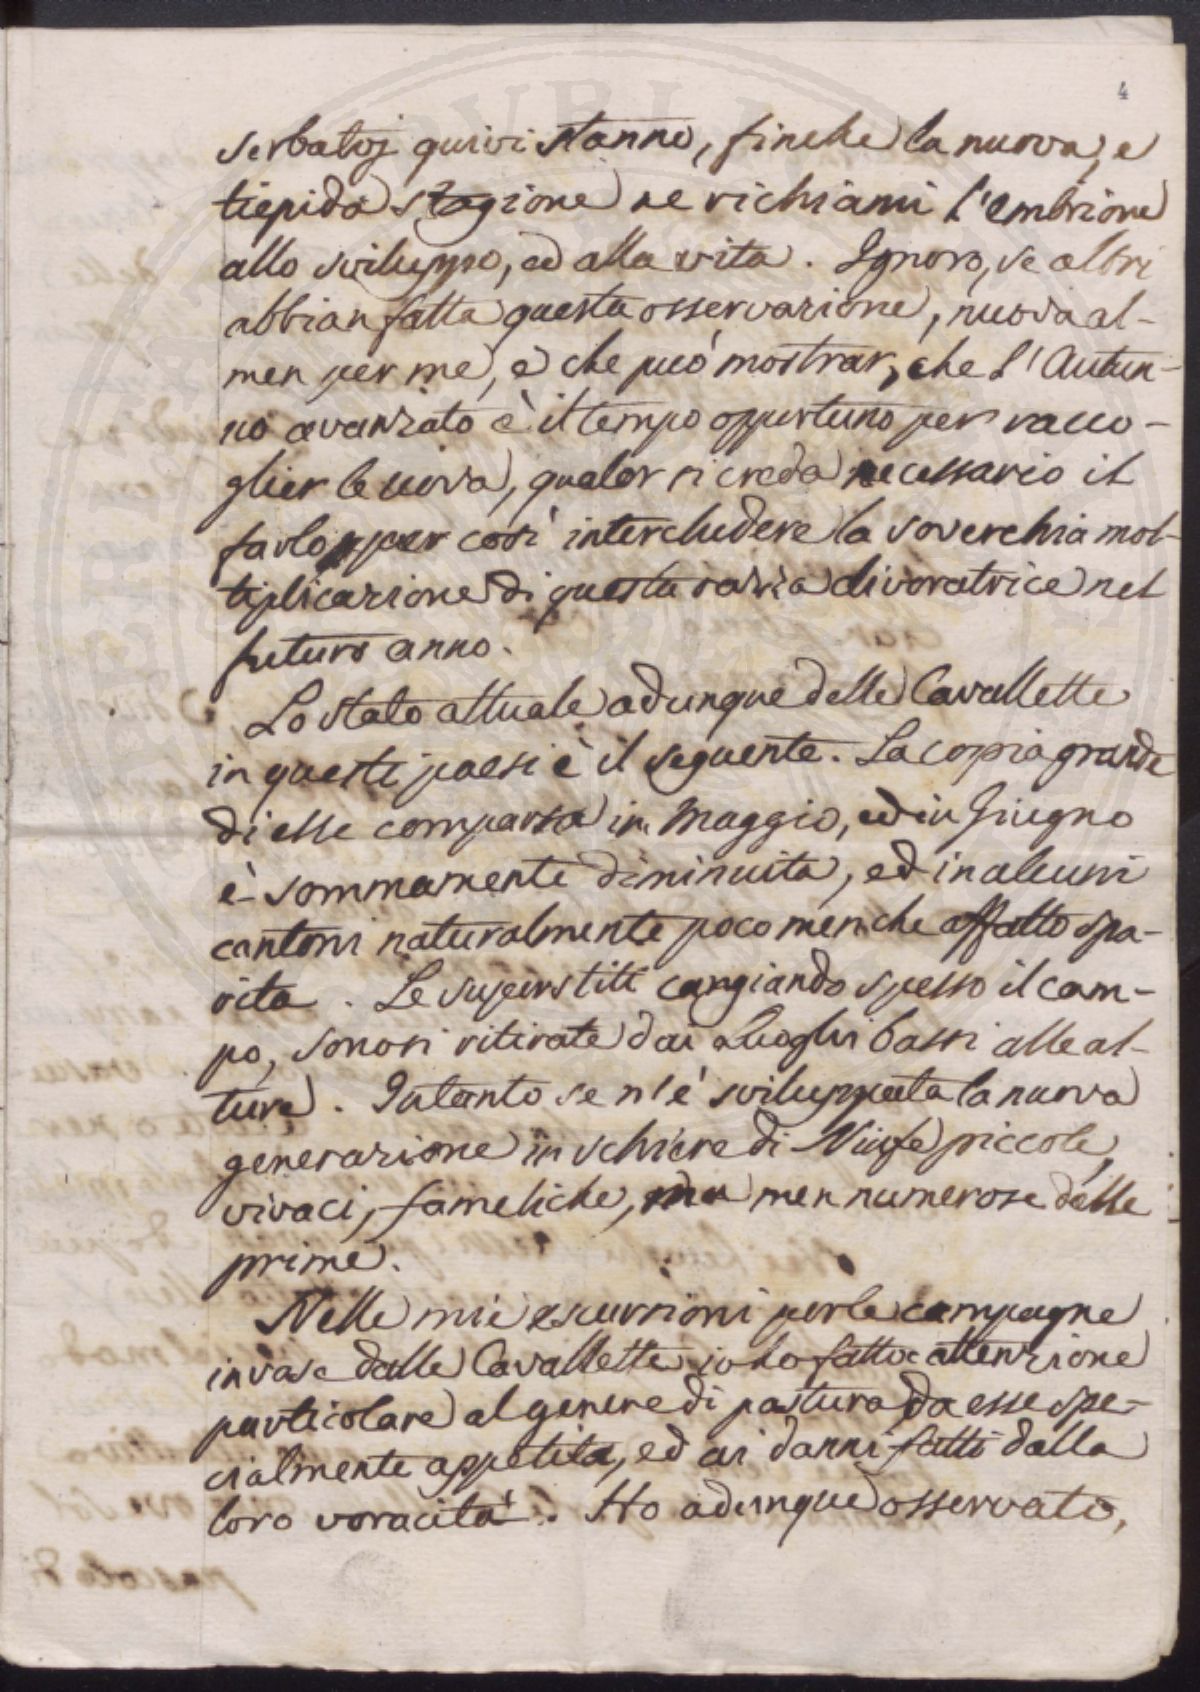 4
serbatoj quivi stanno, finche la nuova, e
tiepida stagione ne richiami l'embrione
allo sviluppo, ed alla vita. Ignoro, se altri
abbian fatta questa osservazione, nuova al-
men per me, e che può mostrar, che l'Autun-
no avanzato è il tempo opportuno per racco-
glier le uova, qualor si creda necessario il
farlo per così intercludere la soverchia mol-
tiplicazione di questa razza divoratrice nel
futuro anno.
Lo stato attuale adunque delle Cavallette
in questi paesi è il seguente. La copia grande
di esse comparsa in Maggio, ed in Giugno
è sommamente diminuita, ed in alcuni
cantoni naturalmente poco men che affatto spa-
rita. Le superstiti cangiando spesso il cam-
po, sonosi ritirate dai luoghi bassi alle al-
ture. Intanto se n'è sviluppata la nuova
generazione in schiere di Ninfe piccole,
vivaci, fameliche, ma men numerose delle
prime.
Nelle mie escursioni per le campagne
invase dalle Cavallette io ho fatto attenzione
particolare al genere di pastura da esse spe-
cialmente appetita, ed ai danni fatti dalla
loro voracità. Ho adunque osservato,